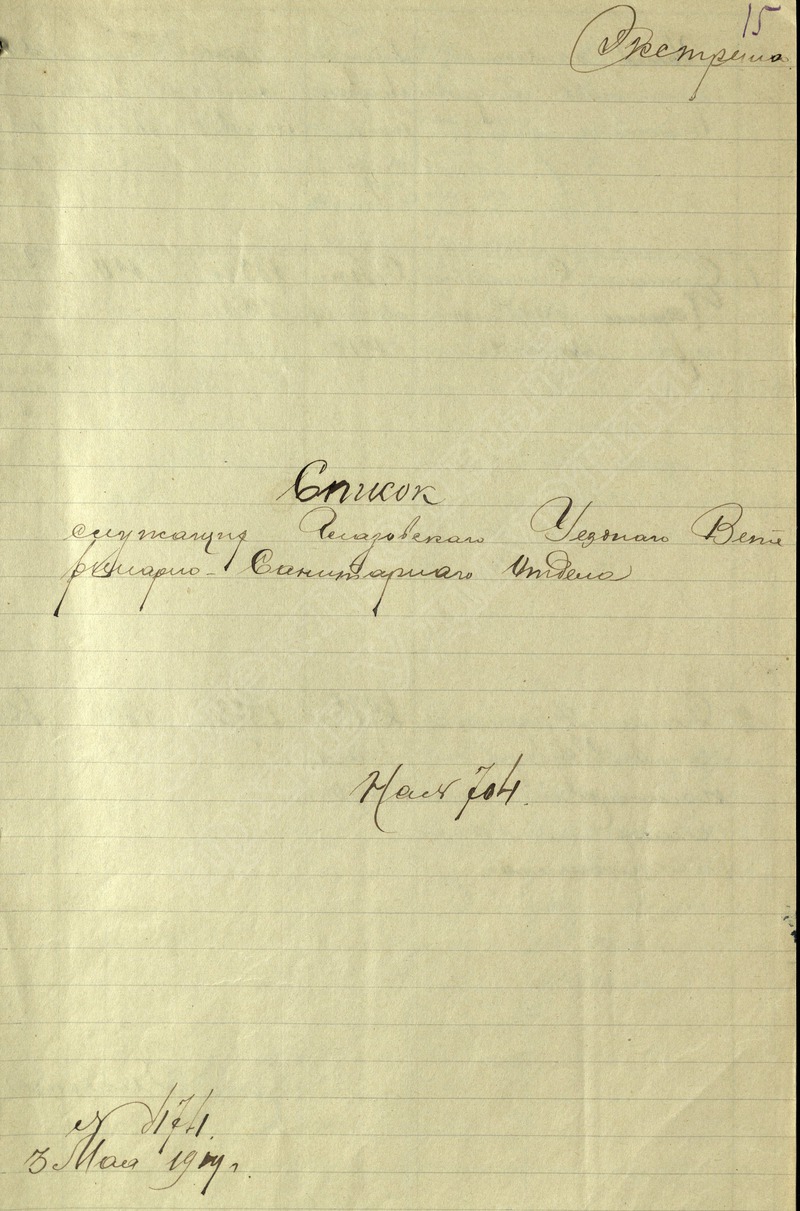 15
Экстрено.
Список
служащих Глазовского Уездного Вете
ринарно-Санитарного Отдела
На № 704.
№ 474.
3 Мая 1919 г.